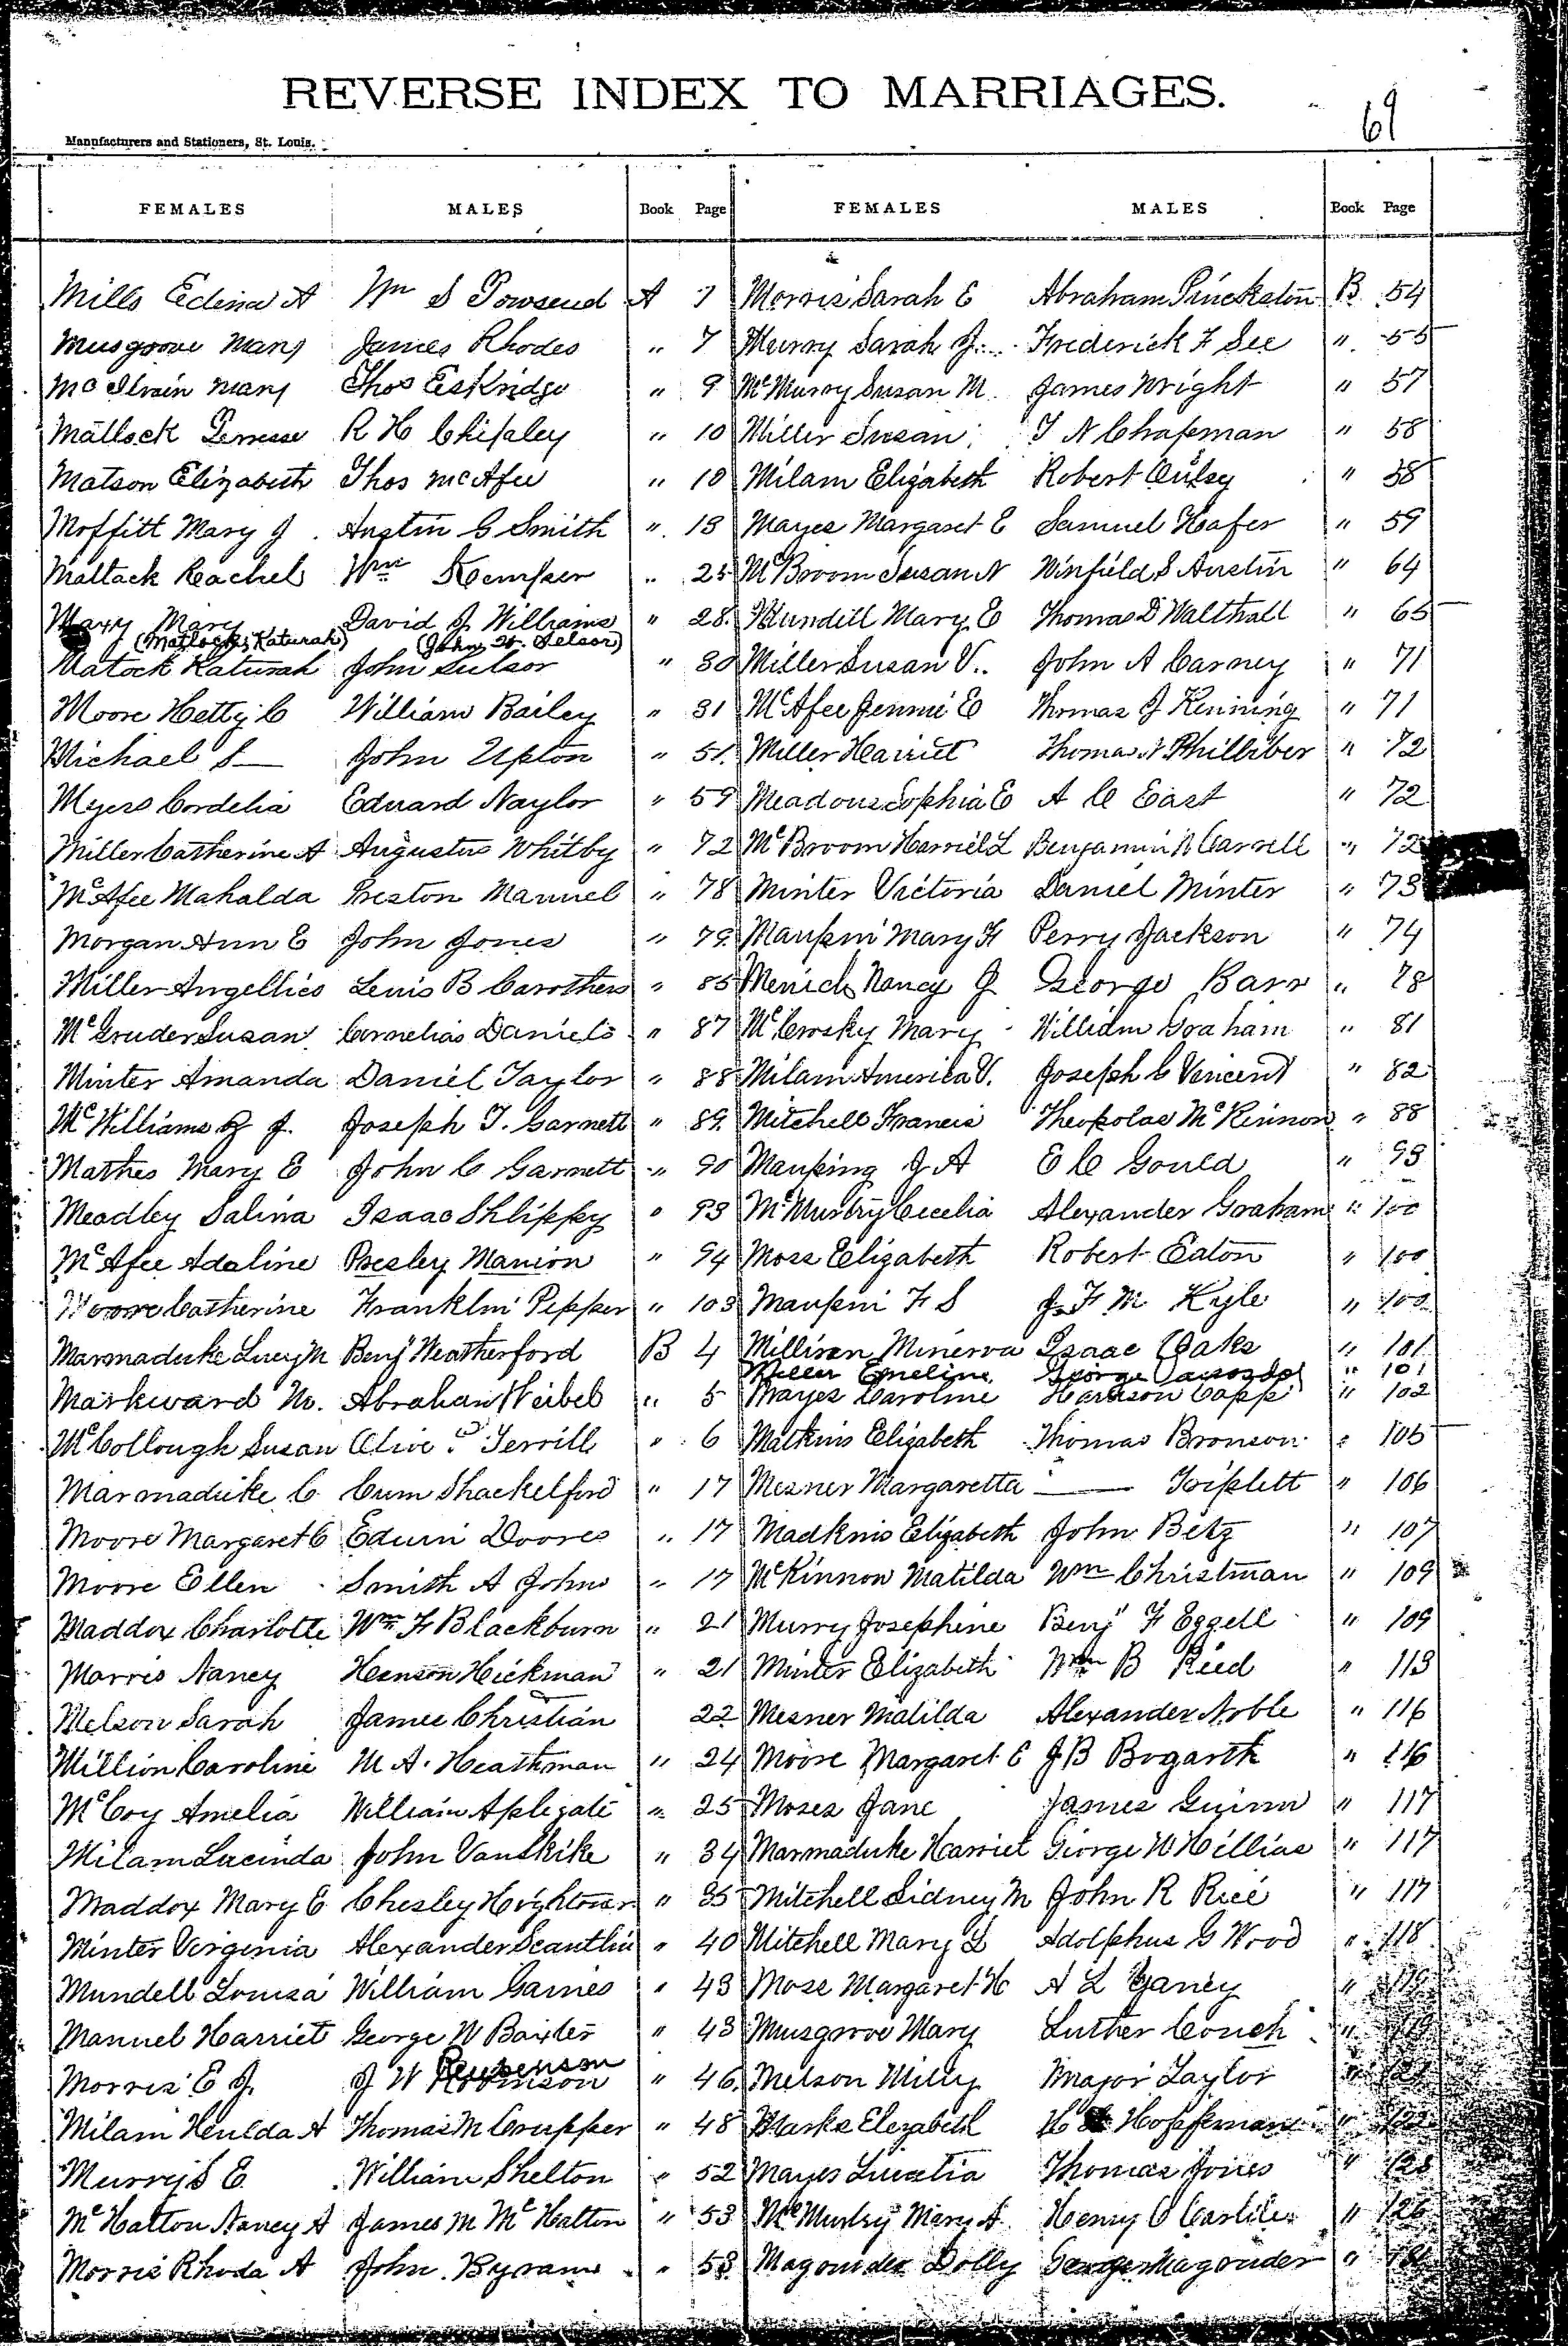 REVERSE INDEX TO MARRIAGES.
69
Manufacturers and Stationers, St. Louis.
FEMALES MALES Book Page FEMALES MALES Book Page
Mills Edena A Wm S Powsend A 7 Morris Sarah E Abraham Pruckston B 54
Musgrove Mary James Rhodes " 7 Murry Sarah J. Frederick F See " 55
McIlvain Mary Thos Eskridge " 9 McMurry Susan M. James Wright " 57
Matlock R H Chipley " 10 Miller Susan T N Chapman " 58
Matson Elizabeth Thos McAfee " 10 Milam Elizabeth Robert " 58
Moffitt Mary J. Austin G Smith " 13 Mayes Margaret E Samuel Hafer " 59
Matlack Rachel Wm Kemper " 25 McBroom Susan N Winfield S Austin " 64
Mary David J Williams " 28 Mundell Mary E Thomas D Walthall " 65
(Matlock, Katurah) (John W. Selsor)
Matock Katurah John Sulsor " 30 Miller Susan V. John A Carney " 71
Moore Hetty C William Bailey " 31 McAfee Jennie E Thomas J Kenning " 71
Michael S— John Upton " 51 Miller Harriet Thomas N Philliber " 72
Myers Cordelia Edward Naylor " 59 Meadows Sophia E A C East " 72
Miller Catherine A Augustus Whitby " 72 McBroom Harriet L Benjamin N Carrell " 72
McAfee Mahalda Preston Manuel " 78 Minter Victoria Daniel Minter " 73
Morgan Ann E John Jones " 79 Maupin Mary F Perry Jackson " 74
Miller Angellico Lewis B Carothers " 85 Nancy J George Barr " 78
McGruder Susan Cornelias Daniels " 87 McCrosky Mary William Graham " 81
Minter Amanda Daniel Taylor " 88 Milam America V. Joseph C Vincent " 82
McWilliams J. Joseph T. Garnett " 89 Mitchell Francis Theopolas McKinnon " 88
Mathes Mary E John C Garnett " 90 Mauping J A E C Gould " 93
Meadley Salina Isaac Shlippy " 93 McMurtry Cecelia Alexander Graham " 100
McAfee Adaline Presley Manion " 94 Moss Elizabeth Robert Eaton " 100
Moore Catherine Franklin Pepper " 103 Maupin F S J. F M Kyle " 100
Marmaduke Lucy M Benj Weatherford B 4 Millison Minerva Isaac Oaks " 101
Miller Emeline George " 101
Markward M. Abraham Weibel " 5 Mayes Caroline Harrison Capp " 102
McCollough Susan Terrill " 6 Matkins Elizabeth Thomas Bronson " 105
Marmaduke C Cum Shackelford " 17 Mesner Margaretta — Triplett " 106
Moore Margaret C Edwin Doores " 17 Madknis Elizabeth John Betz " 107
Moore Ellen Smith A Johns " 17 McKinnon Matilda Wm Christman " 109
Maddox Charlotte Wm F Blackburn " 21 Murry Josephine Benj F Eggell " 109
Morris Nancy Henson Hickman " 21 Minter Elizabeth Wm B Reed " 113
Melson Sarah James Christian 22 Mesner Matilda Alexander Noble " 116
Million Caroline M A. Heathman " 24 Moore Margaret C J B Bogarth " 116
McCoy Amelia William Aplegate " 25 Moses Jane James Guinn " 117
Milam Lucinda John VanSkike " 34 Marmaduke Harriet George W Hillias " 117
Maddox Mary E Chesley Hightower " 35 Mitchell Sidney M John R Rice " 117
Minter Virginia Alexander Scantlin " 40 Mitchell Mary L Adolphus G Wood " 118
Mundell Louisa William Gaines " 43 Mose Margaret H A L Yancy " 119
Manuel Harriet George W Baxter " 43 Musgrove Mary Luther Couch " 119
Reubenson
Morris E J. J W Robinson " 46 Melson Milly Major Taylor "
Milam Heulda A Thomas M Crupper " 48 Marks Elezabeth H Hoffman " 122
Murry S E. William Shelton " 52 Mayes Lucetia Thomas Jones "
McHatton Nancy A James M McHatton " 53 McMurtry Mary A. Henry O Carlile " 126
Morris Rhoda A John Byram " 53 Magouder Dolly George Magouder "